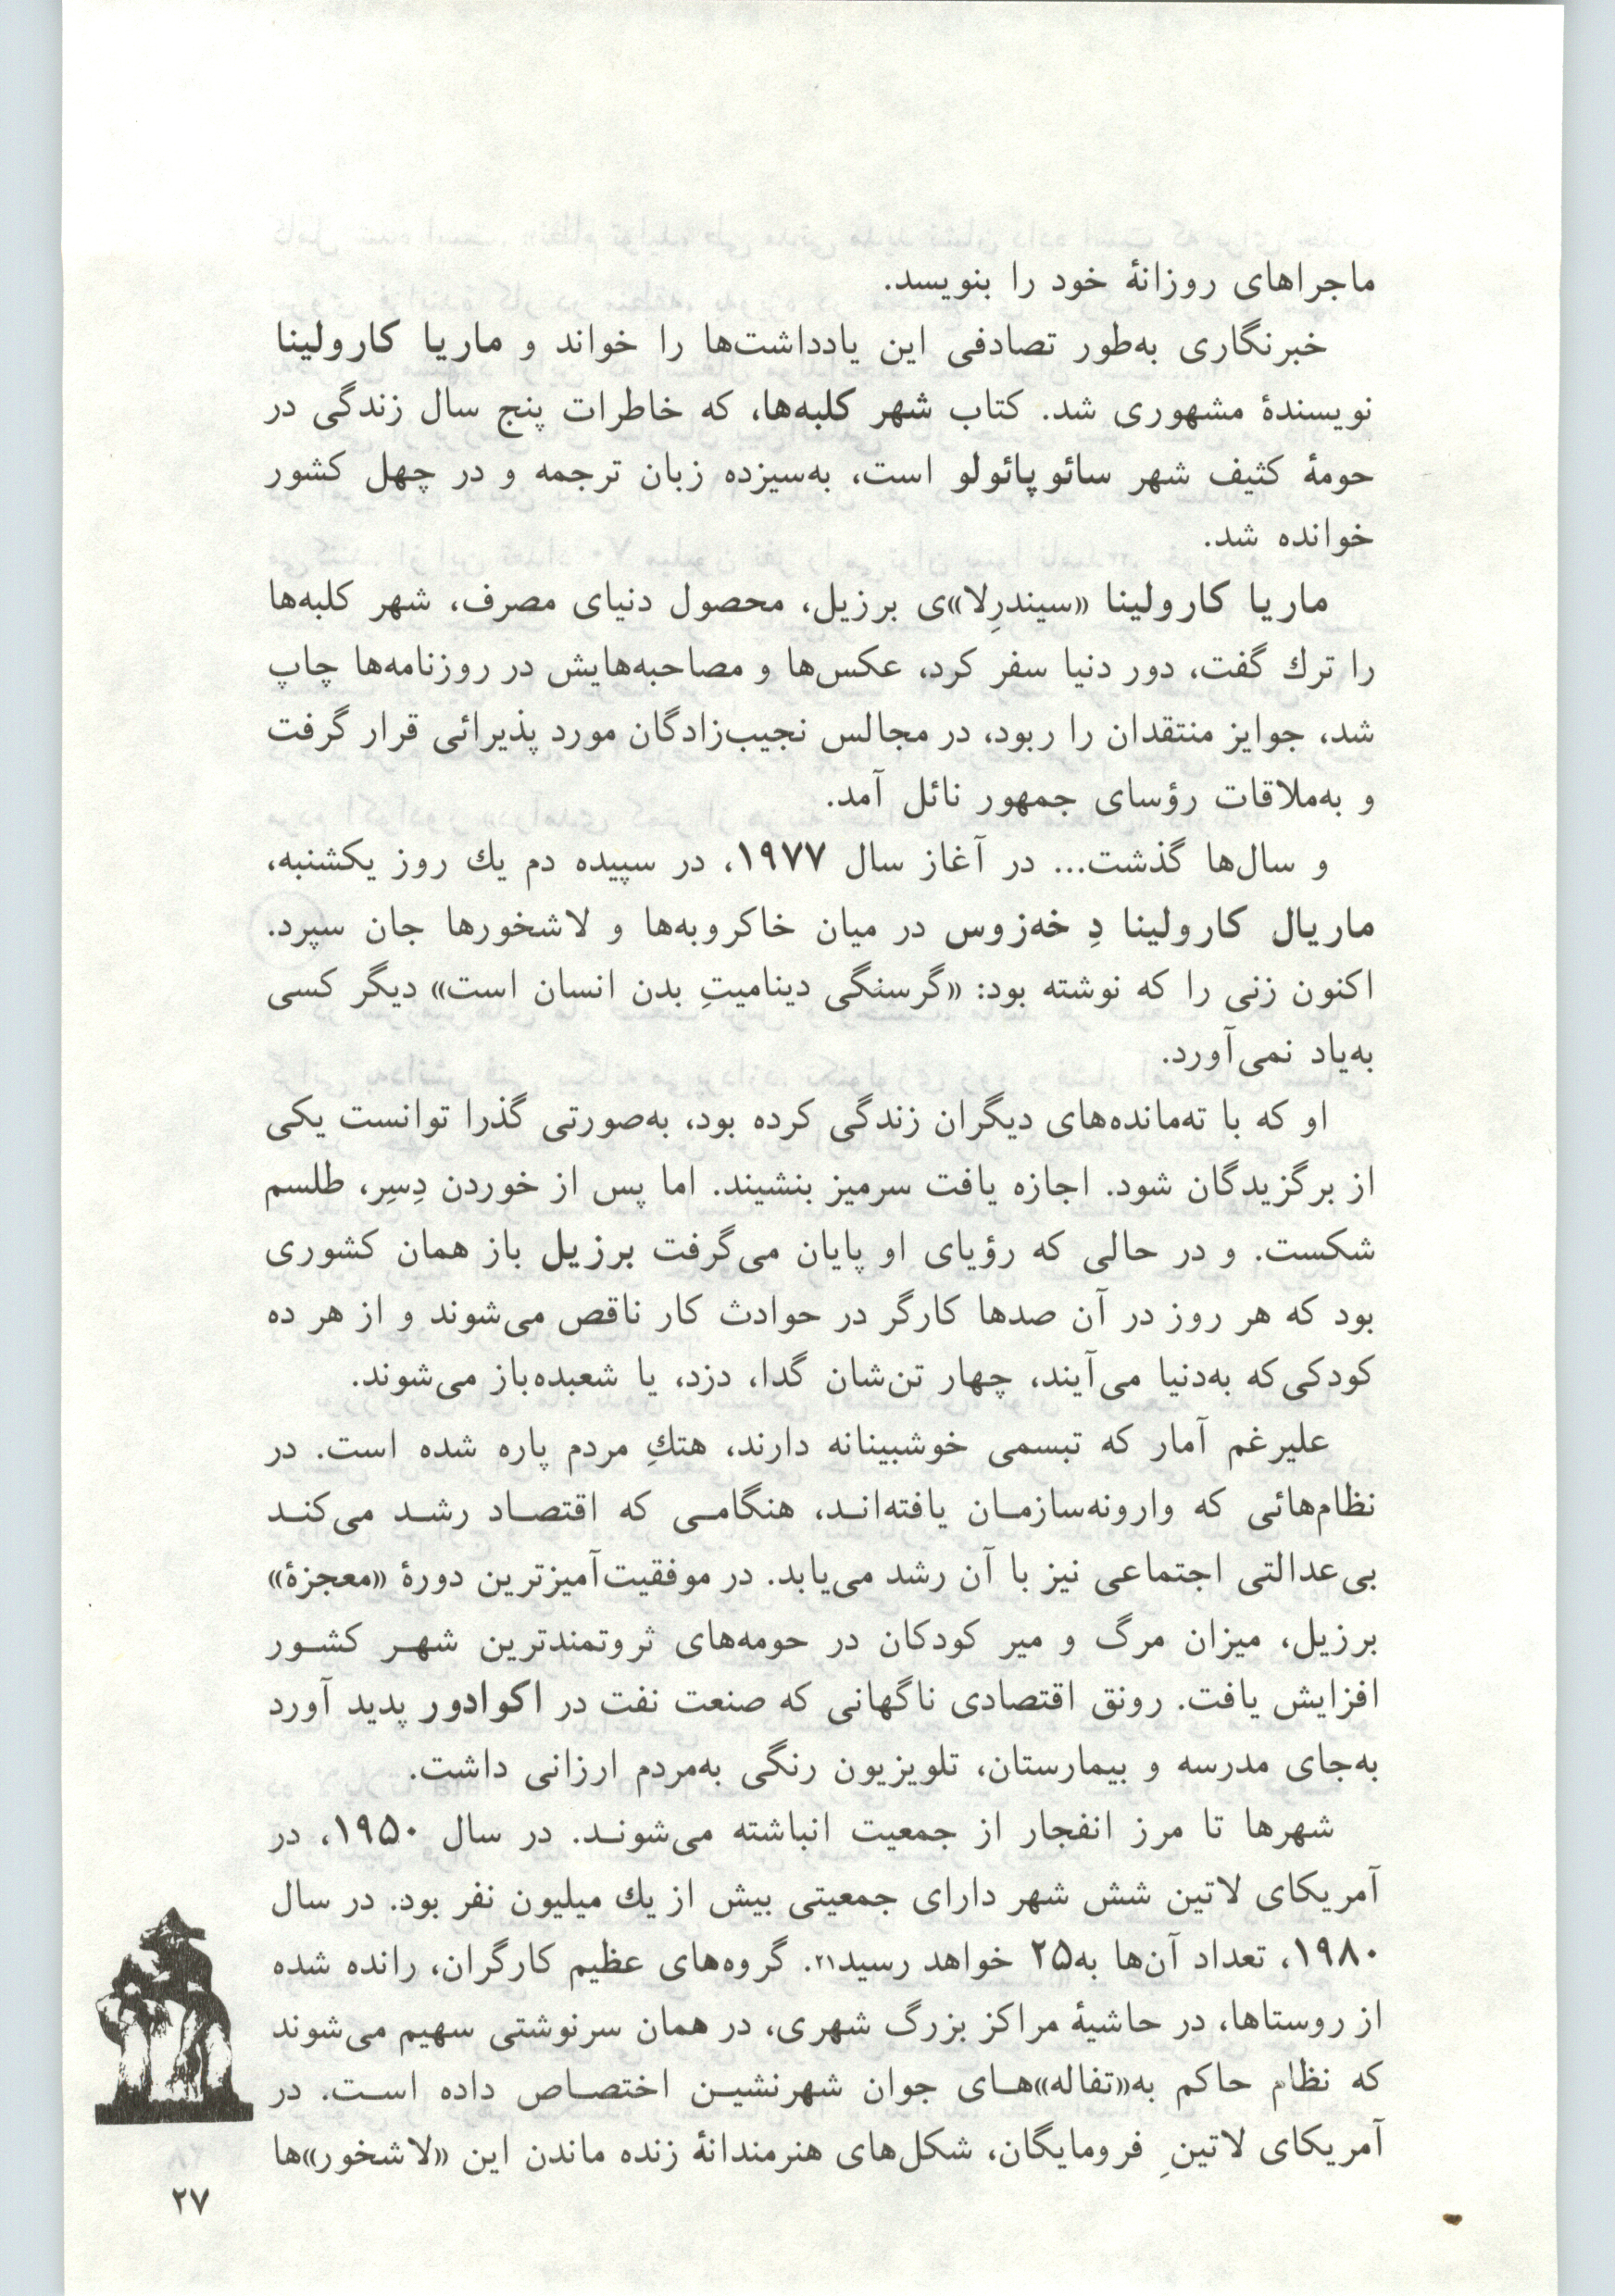 ماجراهای روزانهٔ خود را بنویسد.
خبرنگاری به‌طور تصادفی این یادداشت‌ها را خواند و ماریا کارولینا
نویسندهٔ مشهوری شد. کتاب شهر کلبه‌ها، که خاطرات پنج سال زندگی در
حومهٔ کثیف شهر سائوپائولو است، به‌سیزده زبان ترجمه و در چهل کشور
خوانده شد.
ماریا کارولینا «سیندرِلا»ی برزیل، محصول دنیای مصرف، شهر کلبه‌ها
را ترك گفت، دور دنیا سفر کرد، عکس‌ها و مصاحبه‌هایش در روزنامه‌ها چاپ
شد، جوایز منتقدان را ربود، در مجالس نجیب‌زادگان مورد پذیرائی قرار گرفت
و به‌ملاقات رؤسای جمهور نائل آمد.
و سال‌ها گذشت... در آغاز سال ۱۹۷۷، در سپیده دم یك روز یکشنبه،
ماریال کارولینا دِ خه‌زوس در میان خاکروبه‌ها و لاشخورها جان سپرد.
اکنون زنی را که نوشته بود: «گرسنگی دینامیتِ بدن انسان است» دیگر کسی
به‌یاد نمی‌آورد.
او که با ته‌مانده‌های دیگران زندگی کرده بود، به‌صورتی گذرا توانست یکی
از برگزیدگان شود. اجازه یافت سرمیز بنشیند. اما پس از خوردن دِسِر، طلسم
شکست. و در حالی که رؤیای او پایان می‌گرفت برزیل باز همان کشوری
بود که هر روز در آن صدها کارگر در حوادث کار ناقص می‌شوند و از هر ده
کودکی‌که به‌دنیا می‌آیند، چهار تن‌شان گدا، دزد، یا شعبده‌باز می‌شوند.
علیرغم آمار که تبسمی خوشبینانه دارند، هتكِ مردم پاره شده است. در
نظام‌هائی که وارونه‌سازمـان یافته‌انـد، هنگامـی که اقتصـاد رشـد می‌کنـد
بی‌عدالتی اجتماعی نیز با آن رشد می‌یابد. در موفقیت‌آمیزترین دورهٔ «معجزهٔ»
برزیل، میزان مرگ و میر کودکان در حومه‌های ثروتمندترین شهـر کشـور
افزایش یافت. رونق اقتصادی ناگهانی که صنعت نفت در اکوادور پدید آورد
به‌جای مدرسه و بیمارستان، تلویزیون رنگی به‌مردم ارزانی داشت.
شهرها تا مرز انفجار از جمعیت انباشته می‌شونـد. در سال ۱۹۵۰، در
آمریکای لاتین شش شهر دارای جمعیتی بیش از یك میلیون نفر بود. در سال
۱۹۸۰، تعداد آن‌ها به۲۵ خواهد رسید۲۱. گروه‌های عظیم کارگران، رانده شده
از روستاها، در حاشیهٔ مراکز بزرگ شهری، در همان سرنوشتی سهیم می‌شوند
که نظام حاکم به«تفاله»هـای جوان شهرنشیـن اختصـاص داده اسـت. در
آمریکای لاتینِ فرومایگان، شکل‌های هنرمندانهٔ زنده ماندن این «لاشخور»ها
۲۷